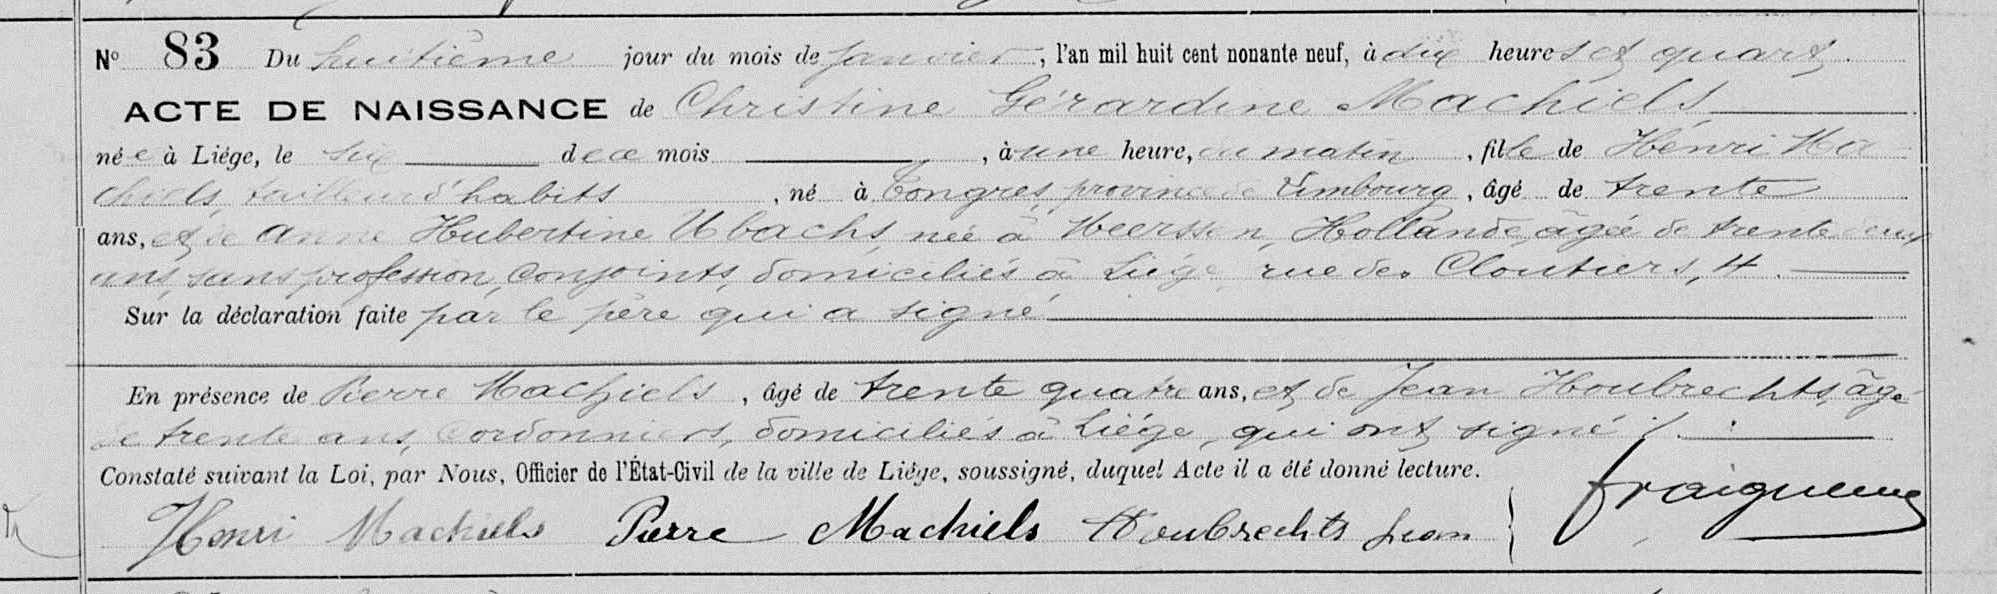 N° 83 Du huitième jour du mois de Janvier, l'an mil huit cent nonante neuf, à dix heures et quart.
ACTE DE NAISSANCE de Christine Gérardine Machiels
née à Liége, le six de ce mois, à une heure, du matin, fille de Hénri Ma
chiels, tailleur d'habits, né à Tongres, province de Limbourg, âgé de trente
ans, et de Anne Hubertine Ubachs, née à Heerssen, Hollande, âgée de trente deux
ans, sans profession, conjoints, domiciliés à Liége, rue des Cloutiers, 4.
Sur la déclaration faite par le père qui a signé
En présence de Pierre Machiels, âgé de trente quatre ans, et de Jean Houbrechts, âgé
de trente ans, cordonniers, domiciliés à Liége, qui ont signé ./.
Constaté suivant la Loi, par Nous, Officier de l'État-Civil de la ville de Liége, soussigné, duquel Acte il a été donné lecture.
Henri Machiels Pierre Machiels Houbrechts Jean